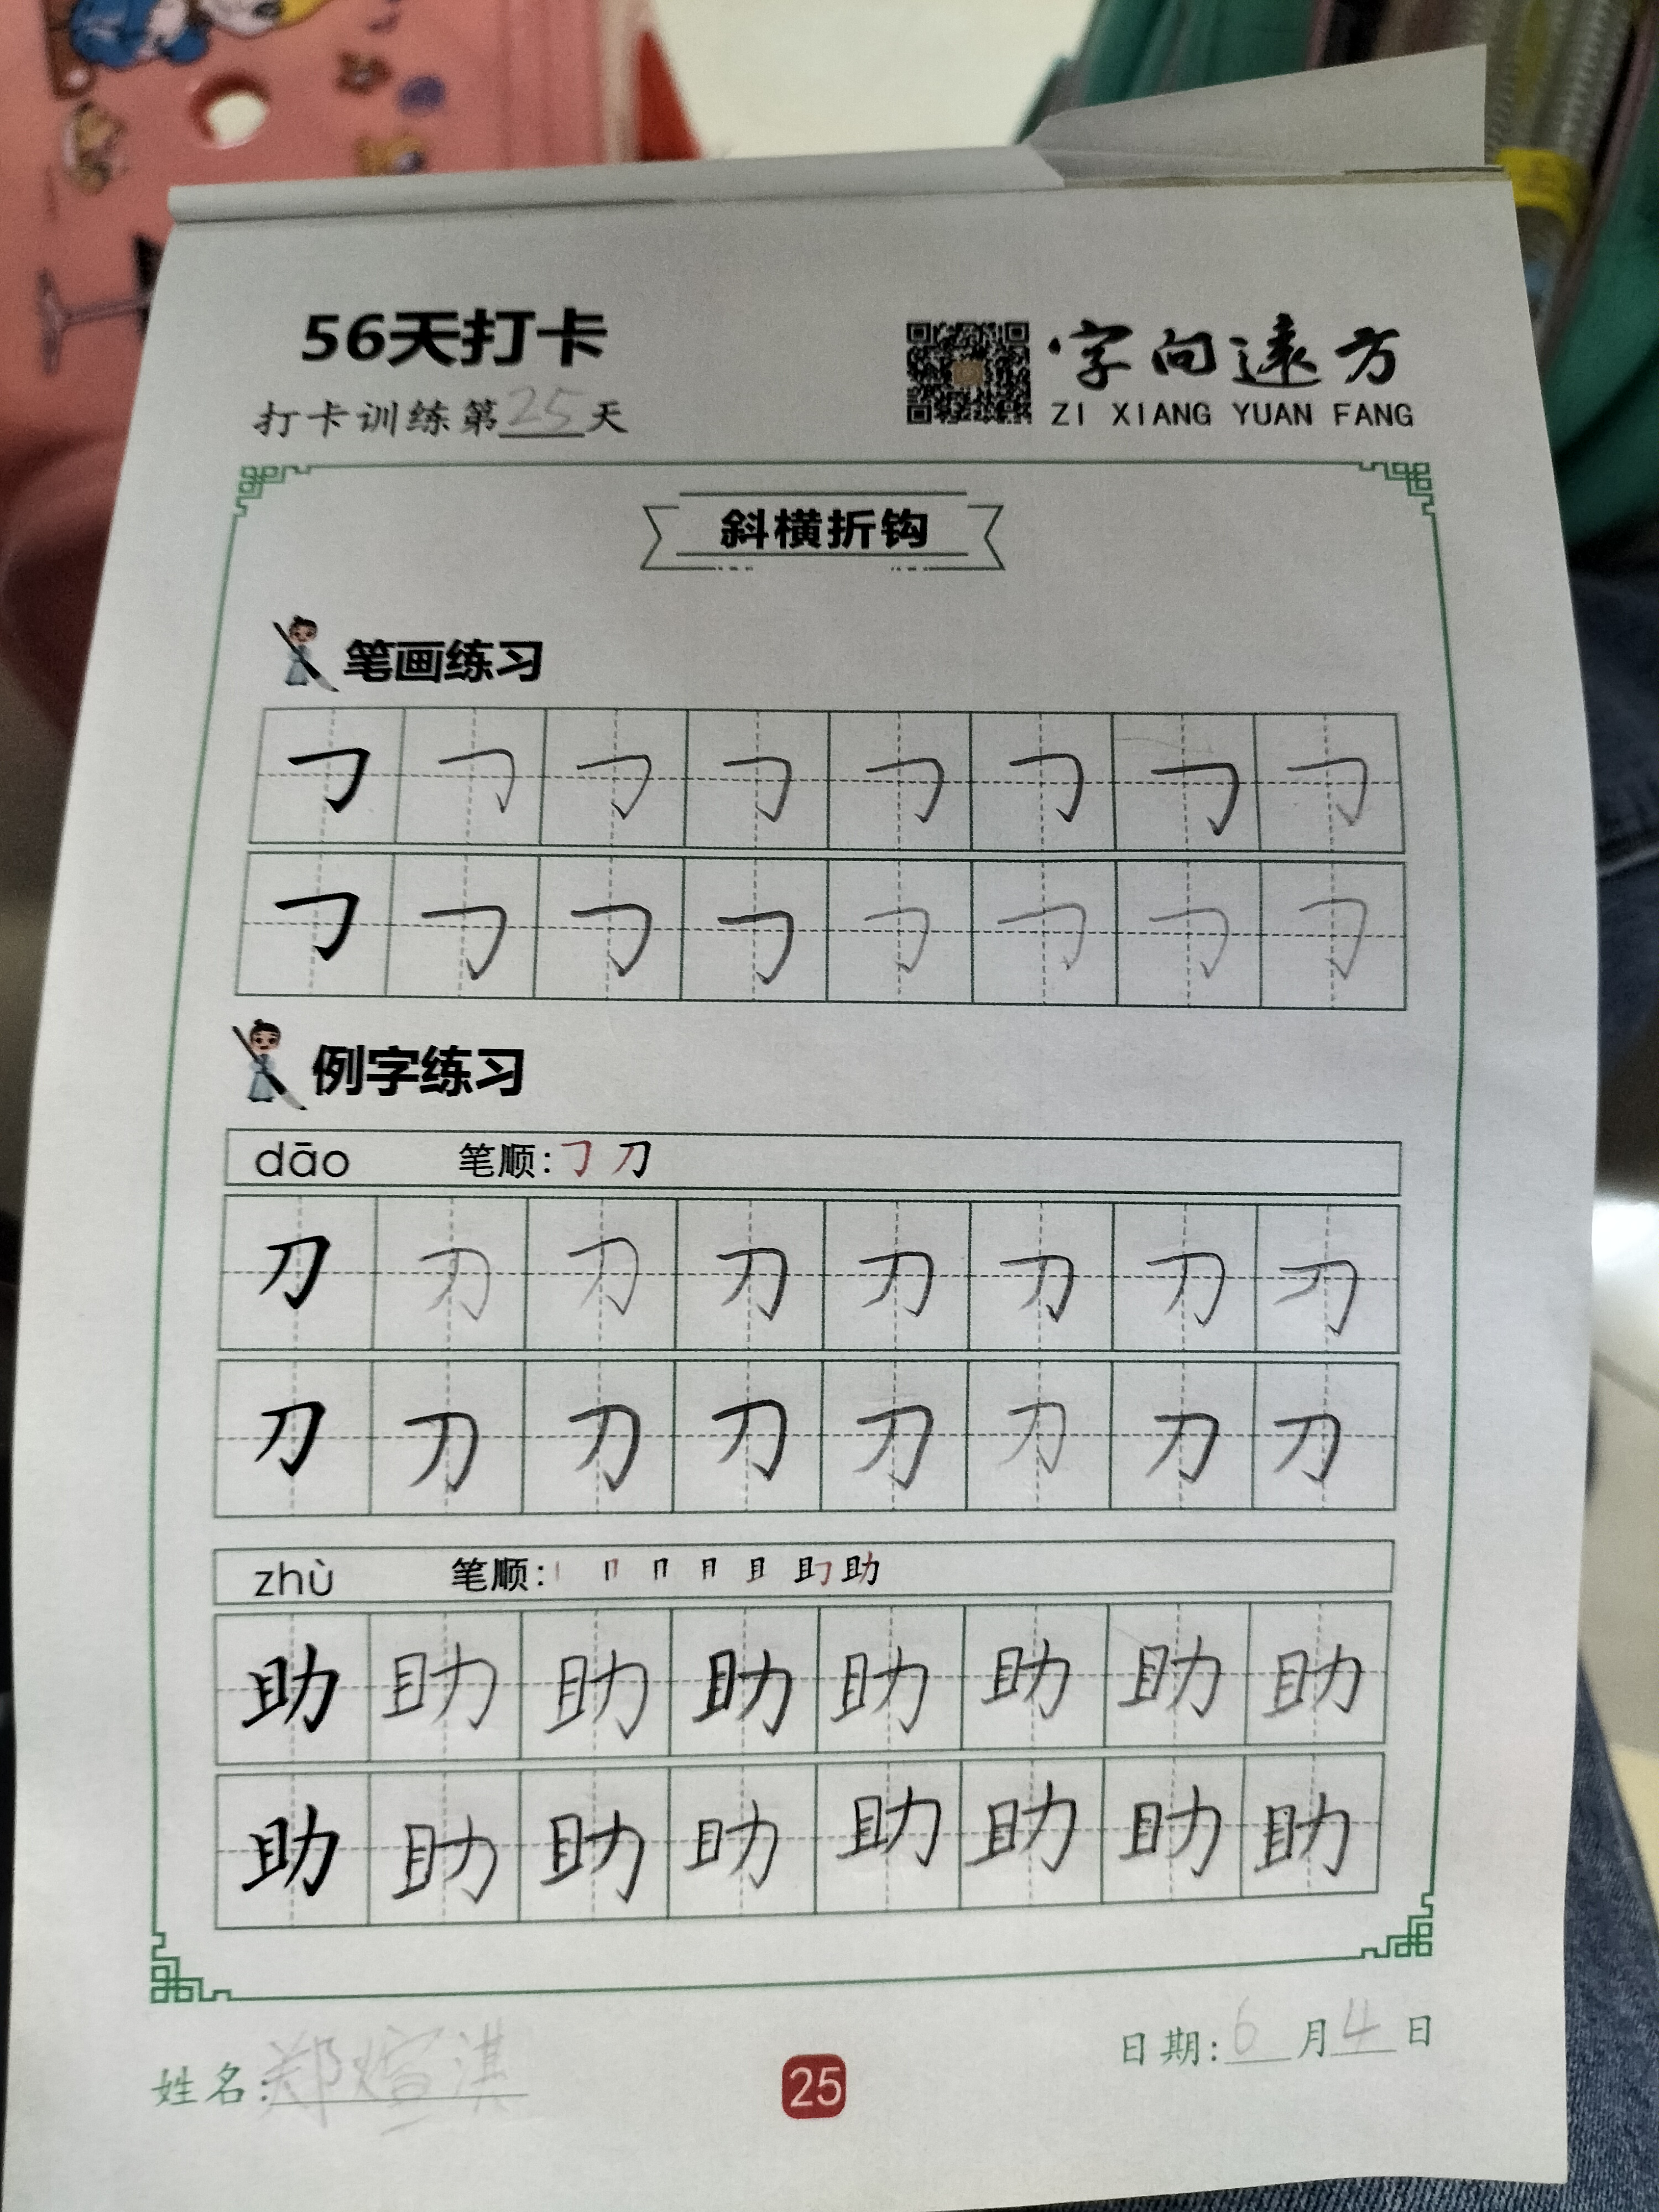 56天打卡
打卡训练第25天
字向遠方
ZI XIANG YUAN FANG
斜横折钩
笔画练习
㇆ ㇆ ㇆ ㇆ ㇆ ㇆ ㇆ ㇆
㇆ ㇆ ㇆ ㇆ ㇆ ㇆ ㇆ ㇆
例字练习
dāo 笔顺: ㇆ 刀
刀 刀 刀 刀 刀 刀 刀 刀
刀 刀 刀 刀 刀 刀 刀 刀
zhù 笔顺: 丨 冂 冂 月 且 助
助 助 助 助 助 助 助 助
助 助 助 助 助 助 助 助
姓名:郑煊淇
25
日期:6月4日